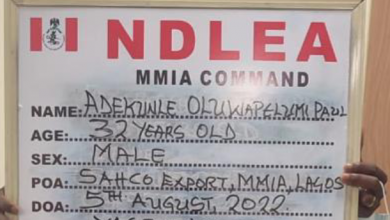 NDLEA
MMIA COMMAND
NAME: ADEKUNLE OLUWAPELUMI PAUL
AGE: 32 YEARS OLD
SEX: MALE
POA: SAHCO EXPORT, MMIA, LAGOS
DOA: 5TH AUGUST, 2022